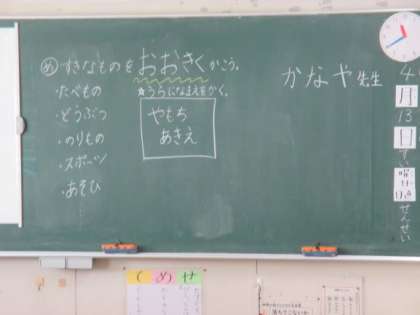 め すきなものを おおきく かこう。
・たべもの
・どうぶつ
・のりもの
・スポーツ
・あそび
★うらになまえをかく。
やもち
あきえ
かなや先生
4
月
13
日
曜日
せんせい
て め せ